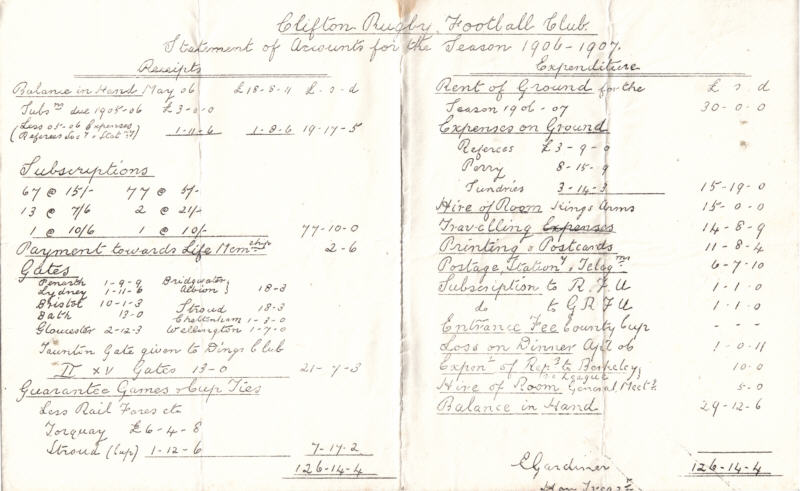 Clifton Rugby Football Club.
Statement of Accounts for the Season 1906-1907.
Receipts
Balance in Hand May 06 £18-8-11 £. s. d
Subsns due 1905-06 £3-0-0
(Less 05-06 Expenses
Referees Socy & Staty) 1-11-6 1-8-6 19-17-5
Subscriptions
67 @ 15/- 77 @ 5/-
13 @ 7/6 2 @ 21/-
1 @ 10/6 1 @ 10/- 77-10-0
Payment towards Life Memship 2-6
Gates
Penarth 1-9-9 Bridgwater
Lydney 1-11-6 Albion } 18-3
Bristol 10-1-3 Stroud 18-3
Bath 13-0 Cheltenham 1-3-0
Gloucester 2-12-3 Wellington 1-7-0
Taunton Gate given to Dings Club
II XV Gates 13-0 21-7-3
Guarantee Games & Cup Ties
Less Rail Fares etc
Torquay £6-4-8
Stroud (Cup) 1-12-6 7-17-2
126-14-4
Expenditure
Rent of Ground for the £ s. d
Season 1906-07 30-0-0
Expenses on Ground
Referees £3-9-0
Perry 8-15-9
Sundries 3-14-3 15-19-0
Hire of Room Kings Arms 15-0-0
Travelling Expenses 14-8-9
Printing & Postcards 11-8-4
Postage, Stationy & Telegms 6-7-10
Subscription to R.F.U 1-1-0
do to G.R.F.U 1-1-0
Entrance Fee County Cup - - -
Loss on Dinner Apl 06 1-0-11
Expens of Rep. to Berkeley, 10-0
League
Hire of Room General Meetg 5-0
Balance in Hand 29-12-6
E Gardiner 126-14-4
Hon Treasr